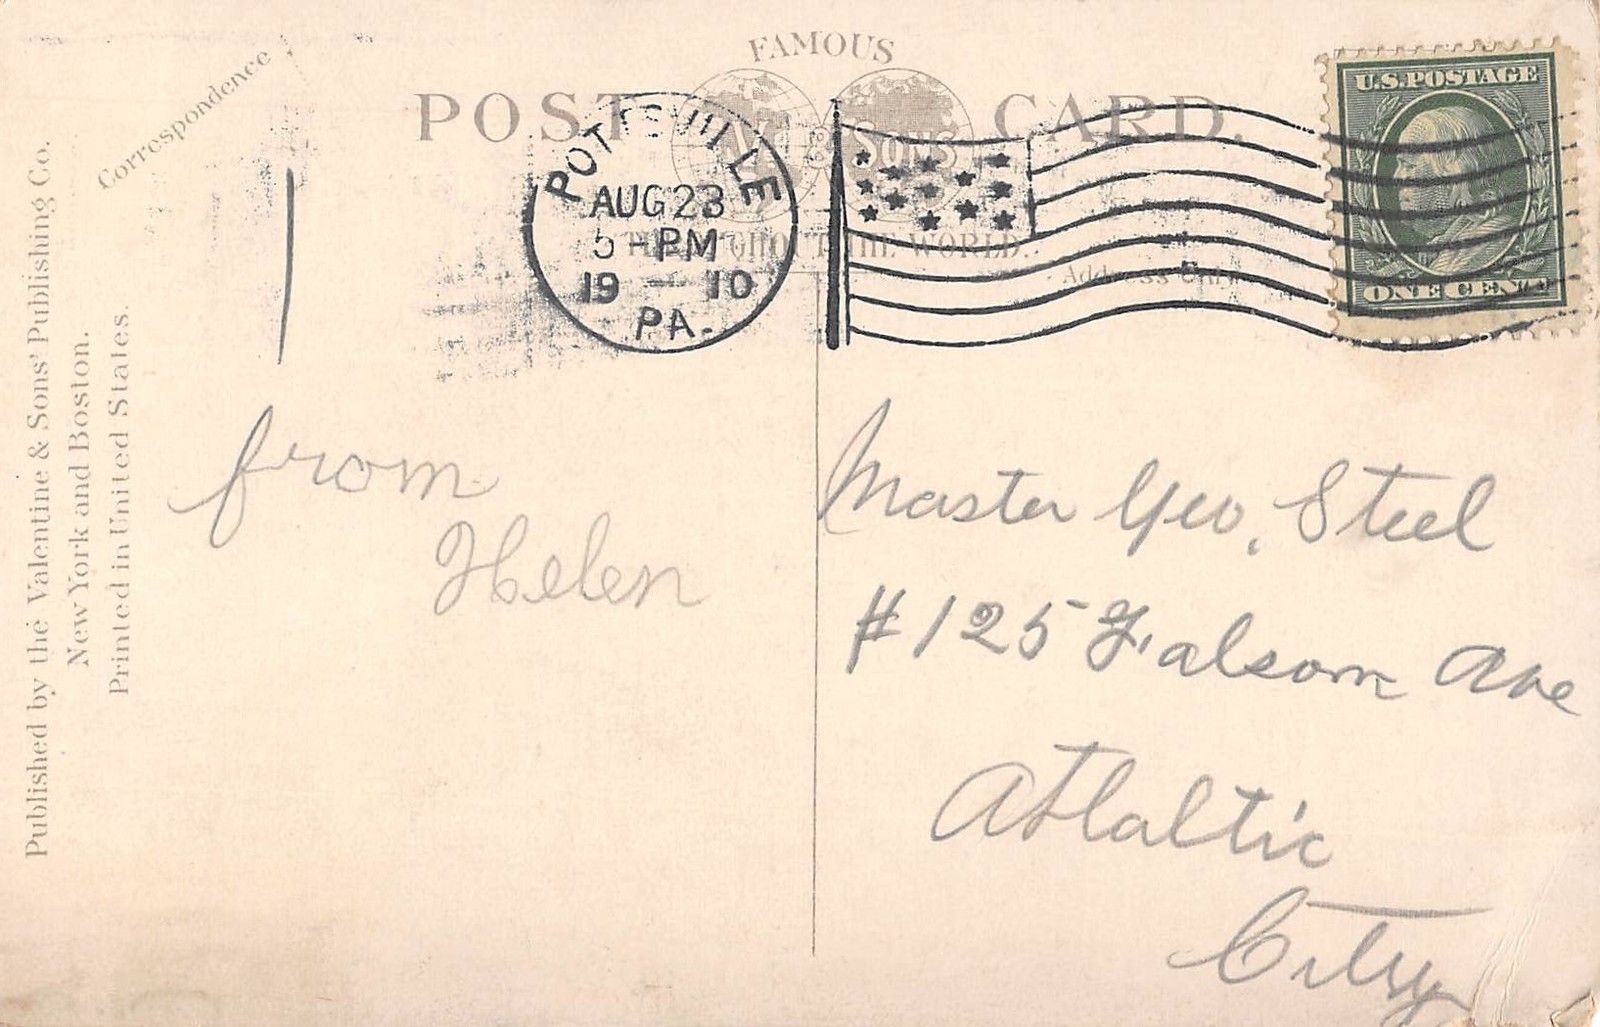 Correspondence
FAMOUS
POST CARD.
& SONS
THROUGHOUT THE WORLD.
Address Only
U.S. POSTAGE
ONE CENT
POTTSVILLE
AUG 23
5 - PM
19 - 10
PA.
Published by the Valentine & Sons' Publishing Co.
New York and Boston.
Printed in United States.
from
Helen
Master Geo. Steel
#125 Falsom Ave
Atlaltic
City